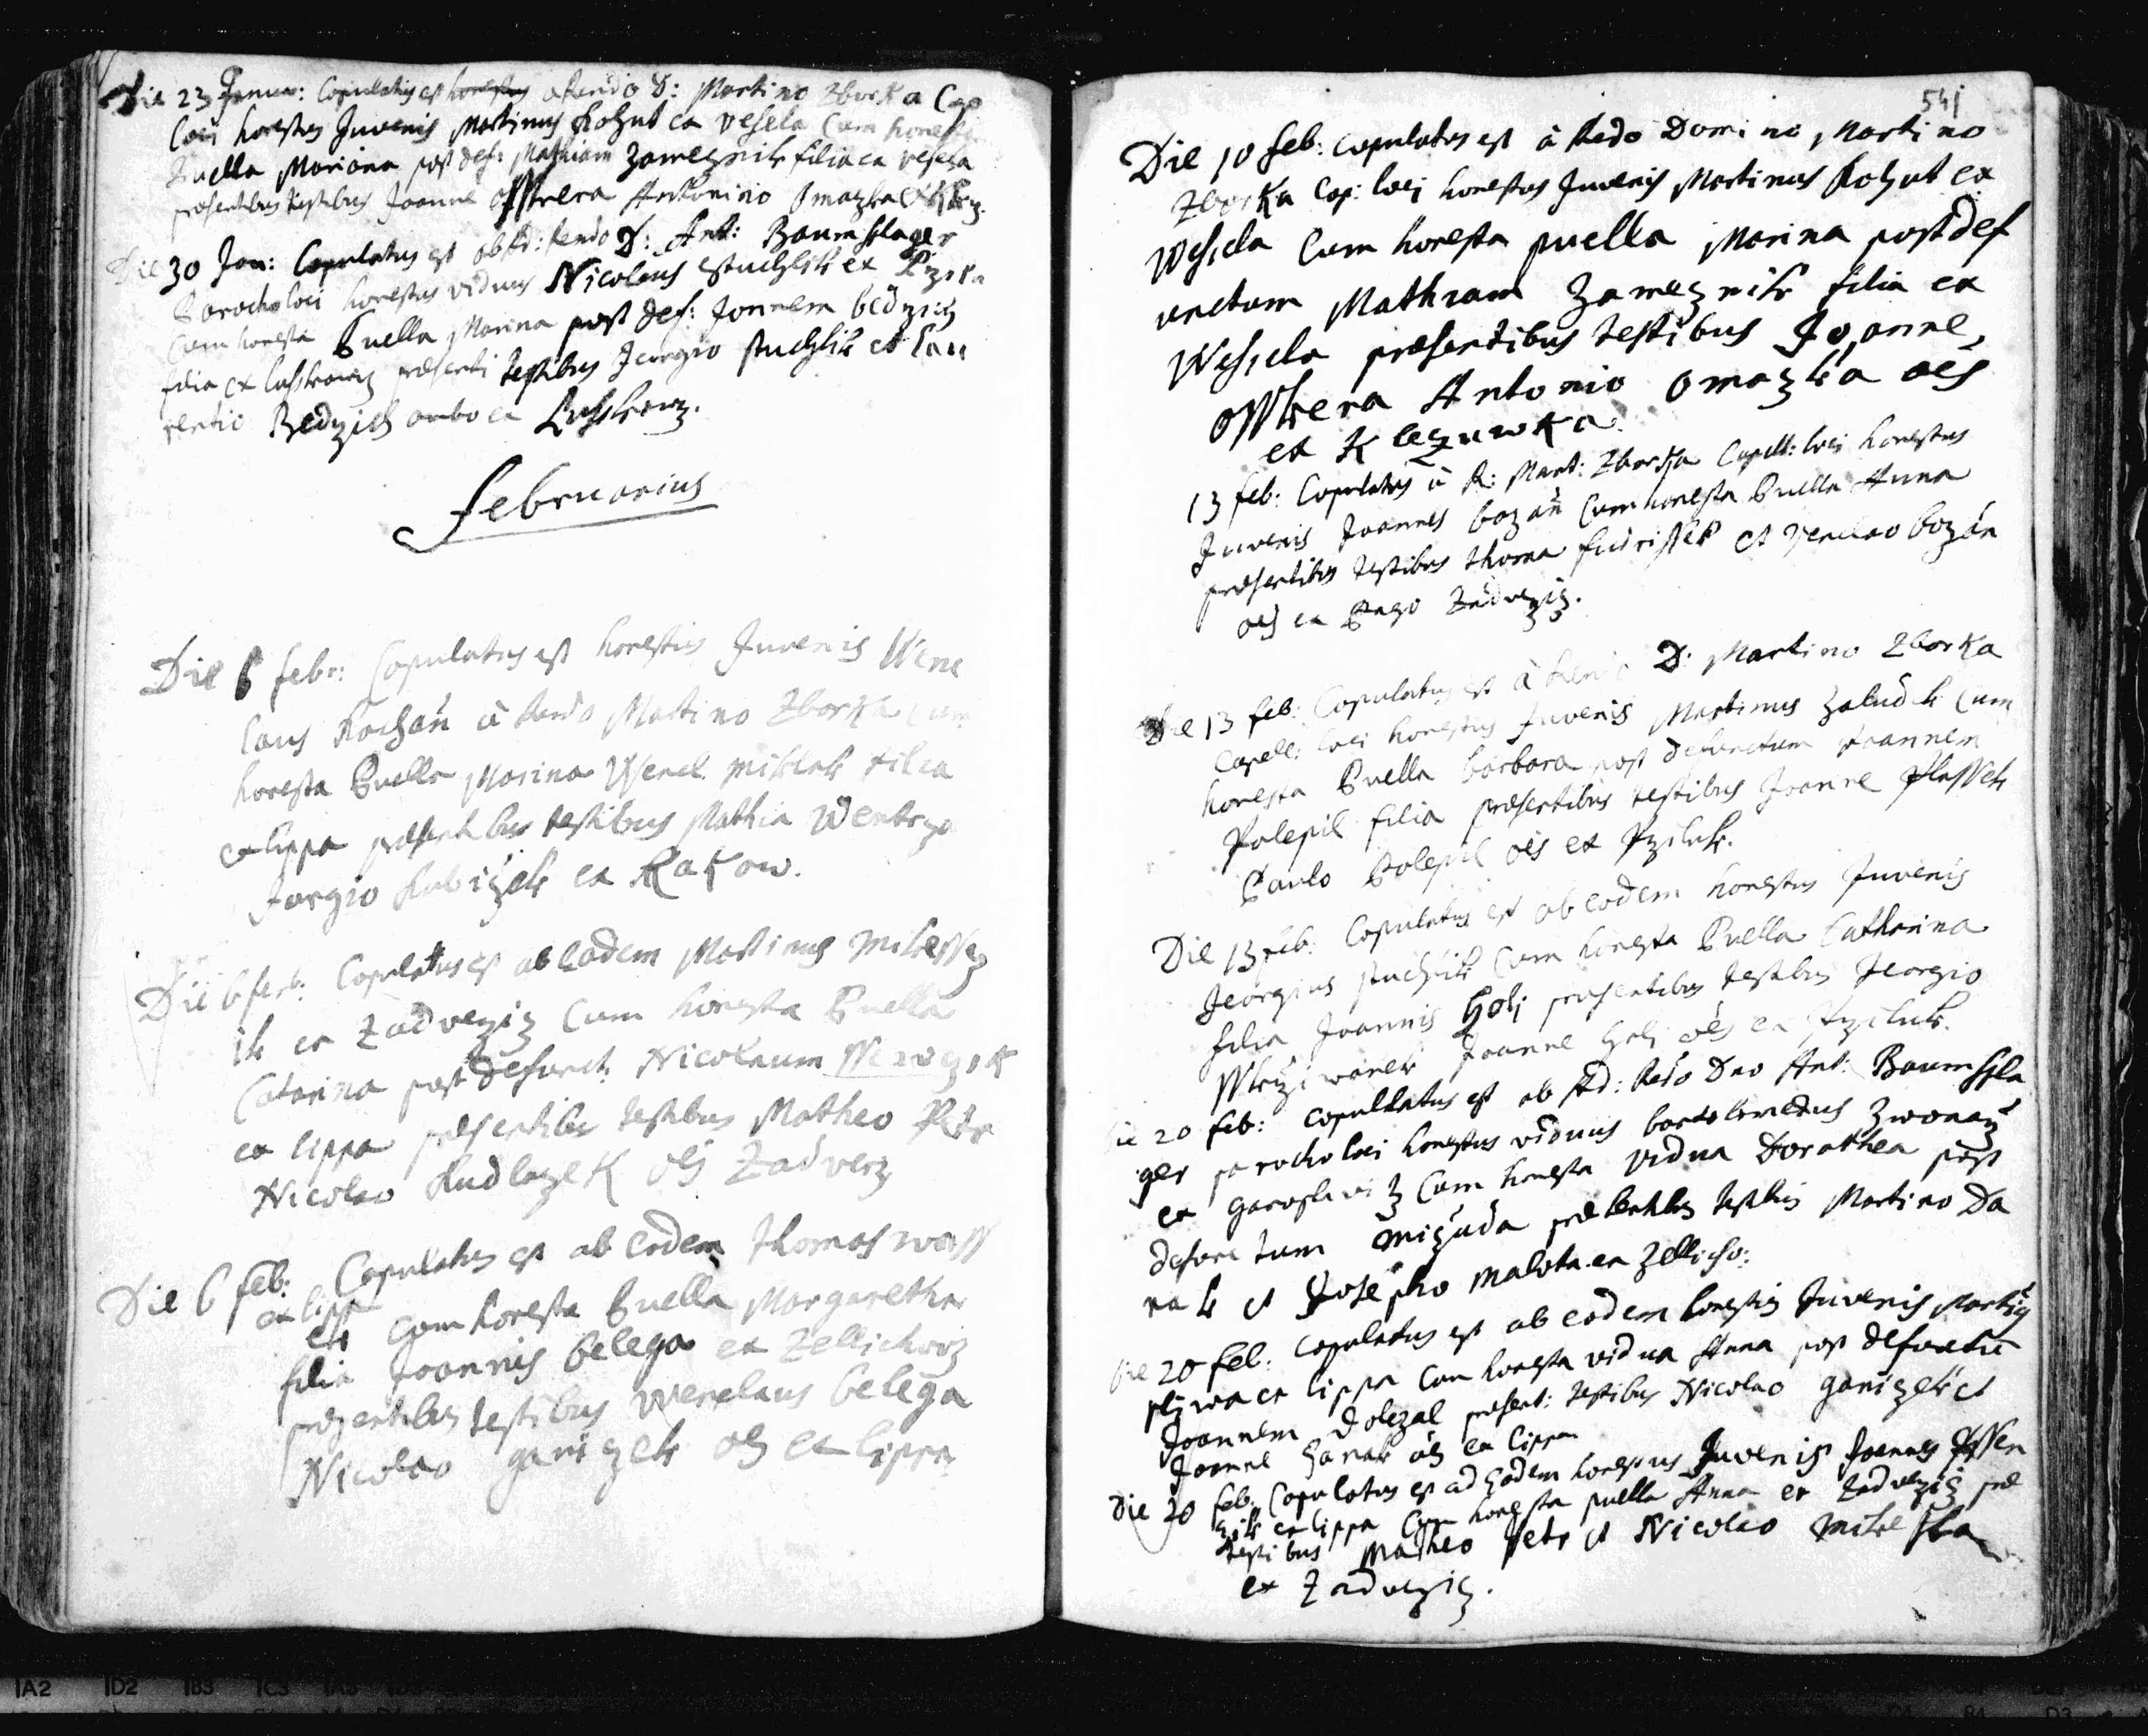 Die 23 Janua: Copulatus est honestus a Rendo D: Martino Zborka Cap
loci honestus Juvenis Martinus Kohut ex Vesela Cum honesta
Puella Mariana post def: Mathiam Zamecznik filia ex Vesela
præsentibus testibus Joanne Antonino Omazka ex
Die 30 Jan: Copulatus est ab Ad: Rendo D: Ant: Baumschlager
Parocho loci honestus viduus Nicolaus Stuchlik ex
Cum honesta Puella Marina post def: Joannem bedzich
filia ex præsenti testibus Jeorgio Stuchlik et Lau
rentio Bedzich ambo ex
Februarius
Die 6 febr: Copulatus est honestus Juvenis Wenc
laus Kochań à Rendo Martino Zborka cum
honesta Puella Marina Wencl. filia
ex lippa præsentibus testibus Mathia
Jorgio Kubizek ex Rakow.
Die 6 feb: Copulatus est ab Eodem Martinus
ik ex Zadvezicz Cum honesta Puella
Catarina post defunct: Nicolaum
ex lippa præsentibus testibus Matheo Petr
Nicolao Kudlazek oes Zadverz
Die 6 feb: Copulatus est ab eodem Thomas
ex lippa
ek Cum honesta Puella Margaretha
filia Joannis belega ex Zellichowz
præsentibus testibus Wenclaus belega
Nicolao ganizek oes ex lippa
541
Die 10 feb: Copulatus est à Redo Domino Martino
Zborka Cap: loci honestus Juvenis Martinus Kohut ex
Wesela Cum honesta puella Marina post def
unctum Mathiam Zamecznik filia ex
Wesela præsentibus testibus Joanne,
Antonio Omazka oes
ex Kleczuwka.
13 feb: Copulatus à R: Mart: Zborka Capell: loci honestus
Juvenis Joannes bozań Cum honesta Puella Anna
præsentibus testibus Thoma et Venclao bozán
oes ex Pago Zadvezicz.
Die 13 feb: Copulatus est à Rendo D: Martino Zborka
Capell: loci honestus Juvenis Martinus Zaludek Cum
honesta Puella barbara post defunctum Joannem
Polepil filia præsentibus testibus Joanne
Paulo Polepil oes ex Prziluk.
Die 13 feb: Copulatus est ab eodem honestus Juvenis
Jeorgius Stuchlik Cum honesta Puella Catharina
filia Joannis Holi præsentibus testibus Jeorgio
Joanne Holi oes ex Prziluk.
Die 20 feb: Copullatus est ab Ad: Redo Dno Ant: Baumschla
ger parocho loci honestus viduus bartolomedus Zwonarz
ex Garoslawitz Cum honesta vidua Dorothea post
defunctum Mizuda præsentibus testibus Martino Da
nak et Josepho Malota ex Zellicho:
Die 20 feb: Copulatus est ab eodem honestus Juvenis Martin
sliwa ex lippa Cum honesta vidua Anna post defunctum
Joannem Dolezal præsent: testibus Nicolao ganizek et
Joanne Hanak oes ex lippa
Die 20 feb: Copulatus est ad Eodem honestus Juvenis Joannes
ex lippa Cum honesta puella Anna ex Zadvezicz præ
testibus Matheo Petr et Nicolao Mikeska
ex Zadvezicz.